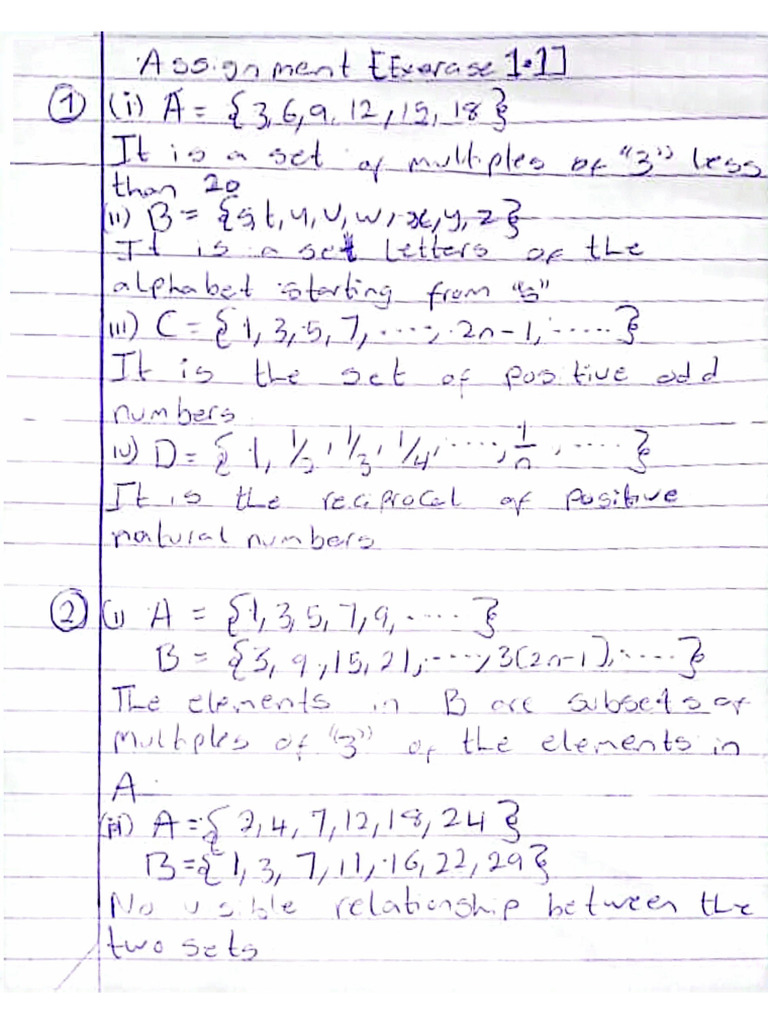 Assignment [Exercise 1.1]
① (i) A = {3, 6, 9, 12, 15, 18}
It is a set of multiples of "3" less
than 20
(ii) B = {s, t, u, v, w, x, y, z}
It is a set letters of the
alphabet starting from "s"
(iii) C = {1, 3, 5, 7, ....., 2n-1, ......}
It is the set of positive odd
numbers
iv) D = {1, 1/2, 1/3, 1/4, ....., 1/n, ..... }
It is the reciprocal of positive
natural numbers
② (i) A = {1, 3, 5, 7, 9, ..... }
B = {3, 9, 15, 21, ....., 3(2n-1), ..... }
The elements in B are subsets of
multiples of "3" of the elements in
A
(ii) A = { 2, 4, 7, 12, 18, 24 }
B = {1, 3, 7, 11, 16, 22, 29}
No visible relationship between the
two sets